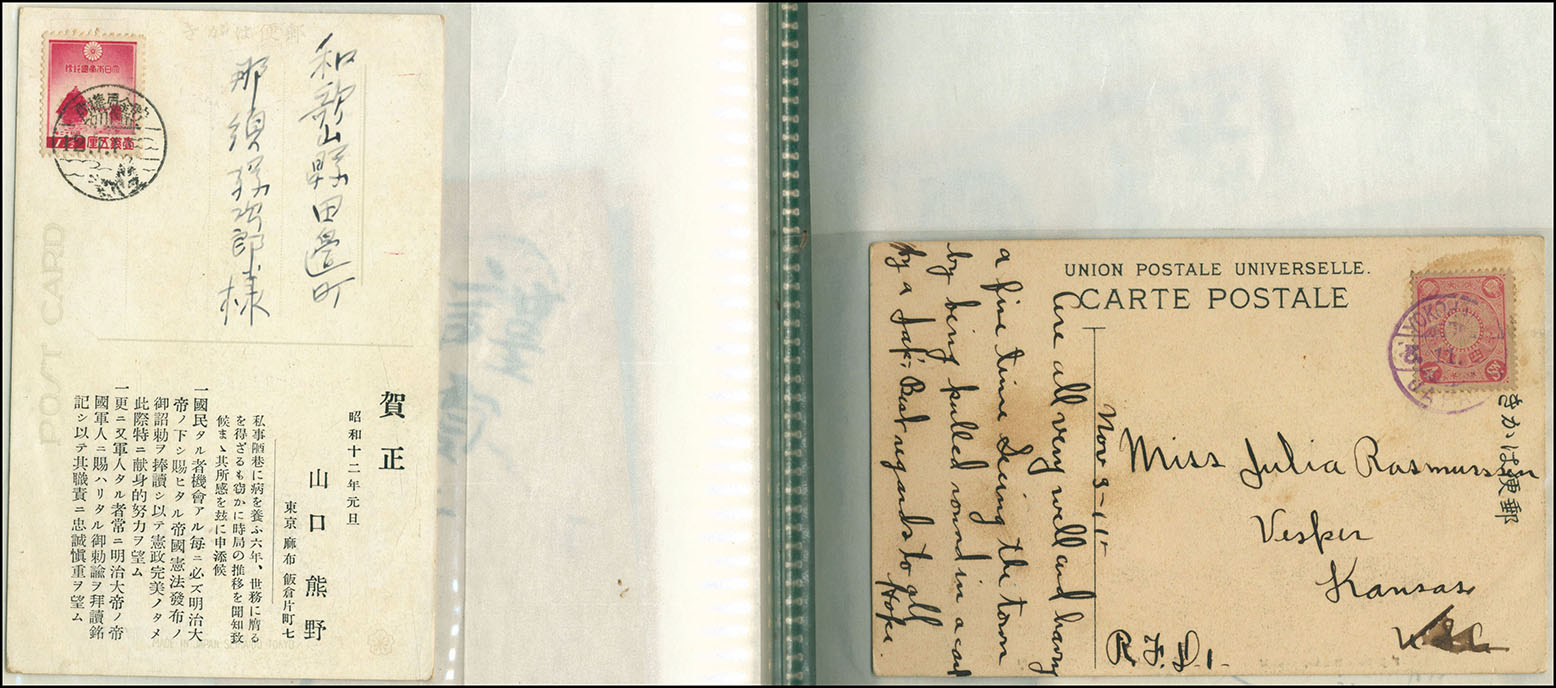 和歌山縣田邊町
那須孫次郎樣
POST CARD
賀正
昭和十二年元旦
山口熊野
東京麻布飯倉片町七
私事陋巷に病を養ふ六年、世務に膺る
を得ざるも窃かに時局の推移を聞知致
候まゝ其所感を玆に申添候
一國民タル者機會アル每ニ必ズ明治大
帝ノ下シ賜ヒタル帝國憲法發布ノ
御詔勅ヲ捧讀シ以テ憲政完美ノタメ
此際特ニ献身的努力ヲ望ム
一更ニ又軍人タル者常ニ明治大帝ノ帝
國軍人ニ賜ハリタル御勅諭ヲ拜讀銘
記シ以テ其職責ニ忠誠愼重ヲ望ム
UNION POSTALE UNIVERSELLE.
CARTE POSTALE
きかは便郵
Nov 3-11
Are all very well and having
a fine time seeing the town
by being pulled round in a cart
by a Jap; Best regards to all
Hope.
Miss Julia Rasmussen
Vesper
Kansas
R.F.D 1.